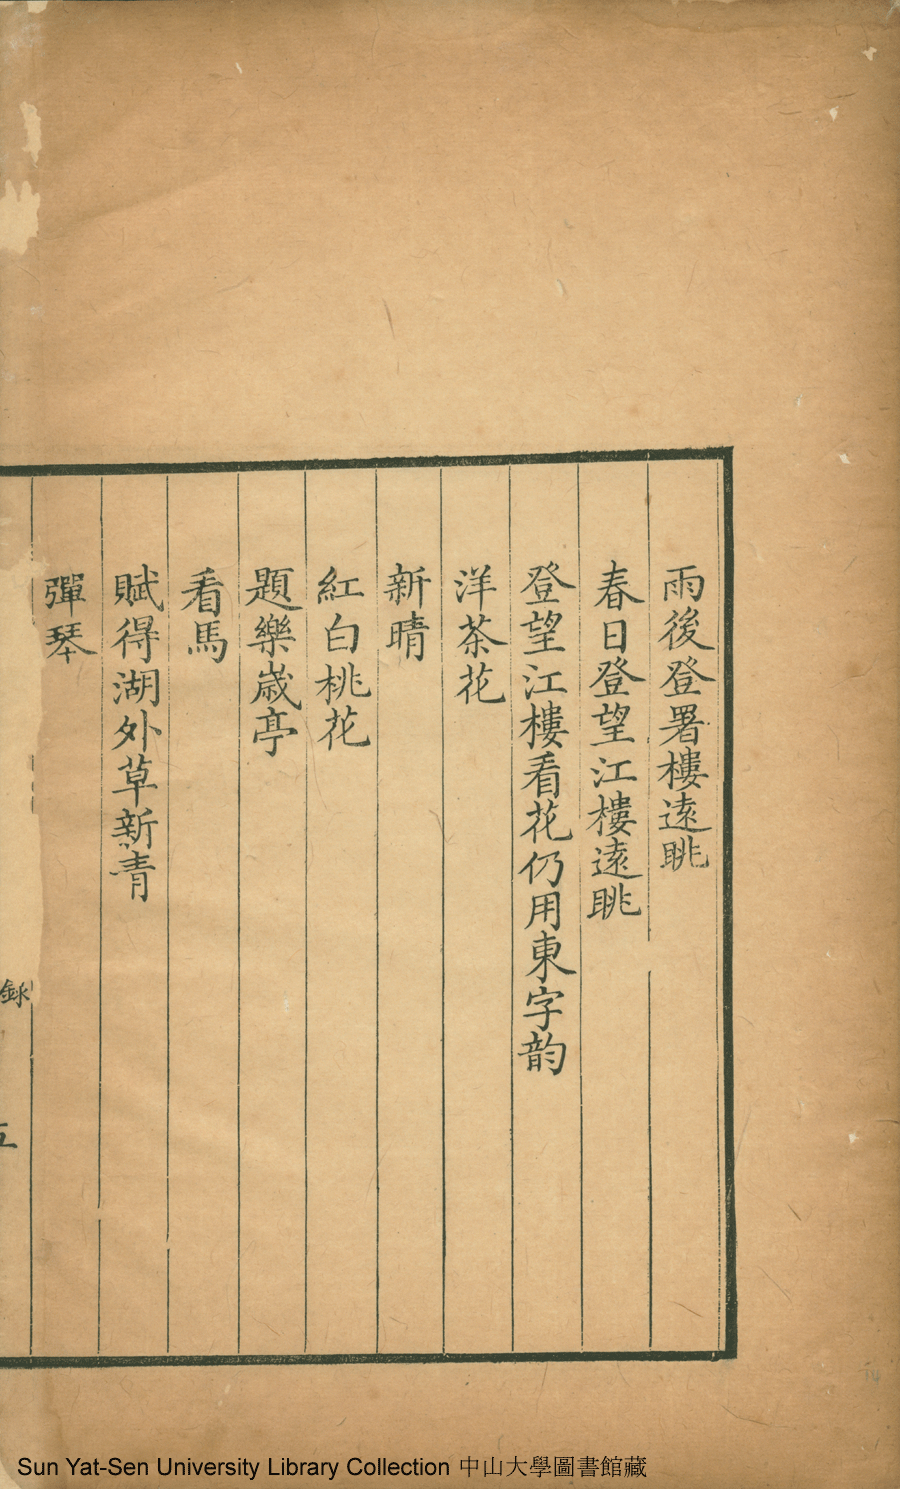 雨後登署樓遠眺
春日登望江樓遠眺
登望江樓看花仍用東字韵
洋茶花
新晴
紅白桃花
題樂歲亭
看馬
賦得湖外草新青
彈琴
錄
五
Sun Yat-Sen University Library Collection 中山大學圖書館藏